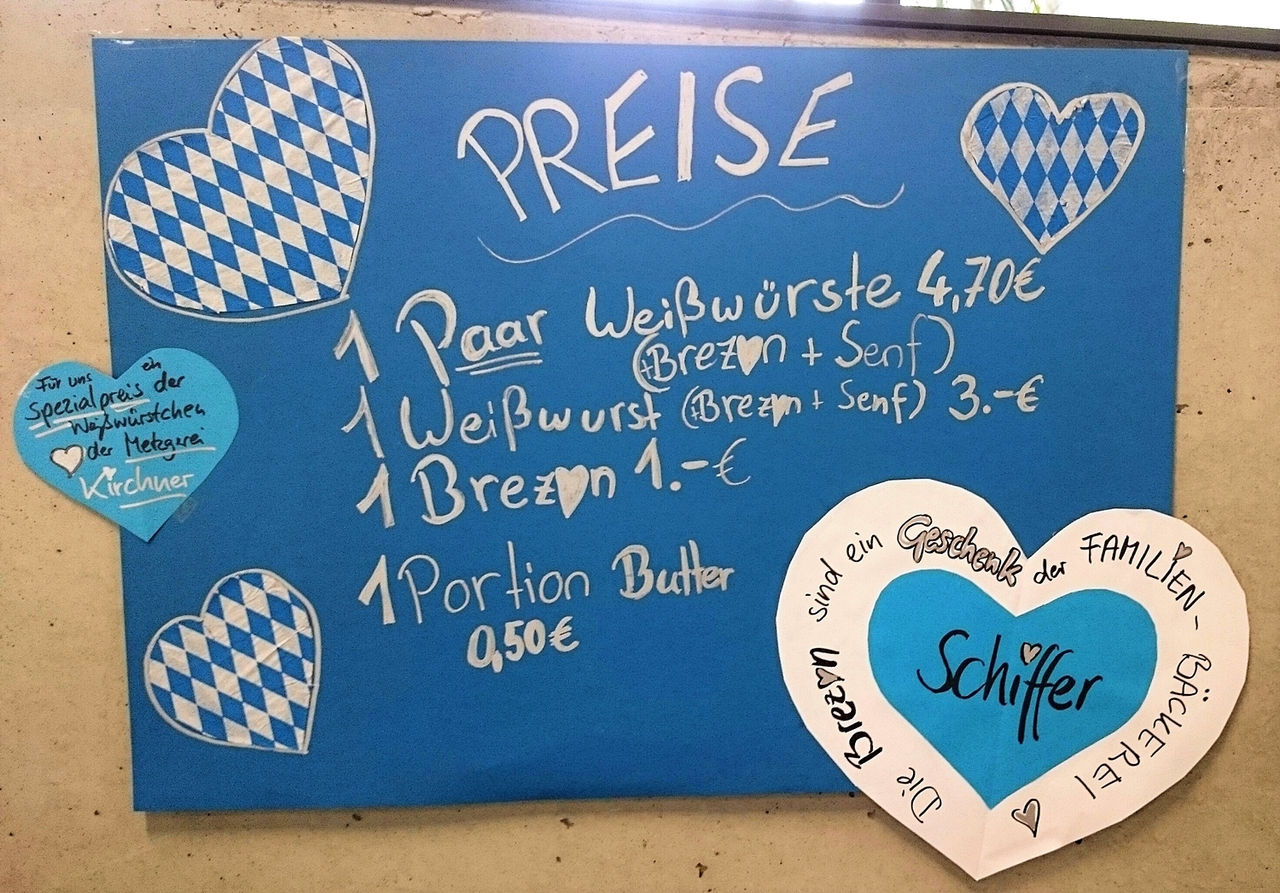 PREISE
1 Paar Weißwürste 4,70€
(+Brezen + Senf)
1 Weißwurst (+Brezen + Senf) 3.-€
1 Brezen 1.-€
1 Portion Butter
0,50€
Für uns ein
Spezialpreis der
Weißwürstchen
der Metzgerei
Kirchner
Die Brezen sind ein Geschenk der FAMILIEN-BÄCKEREI
Schiffer